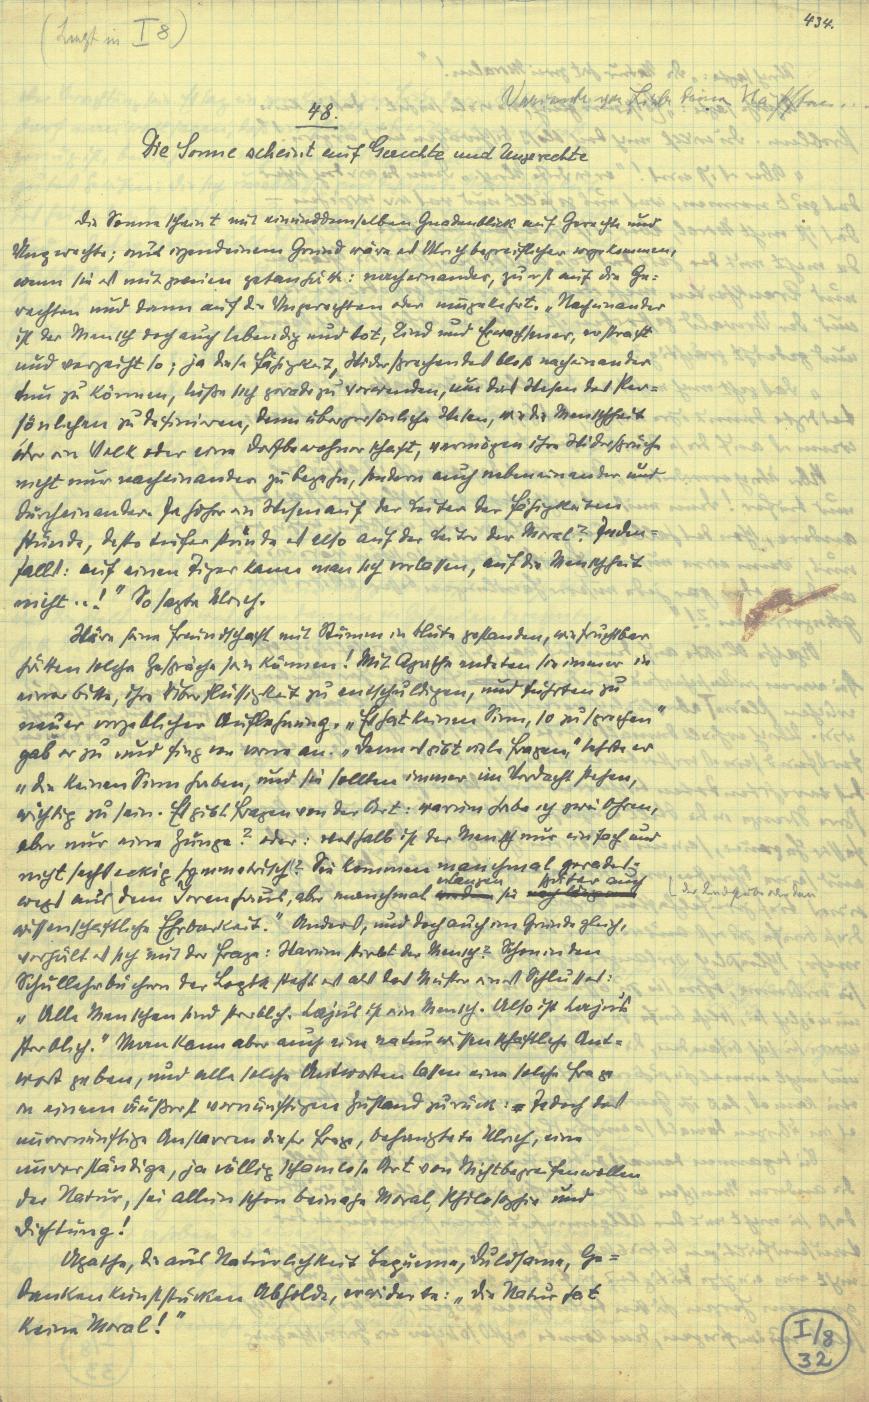 434.
(Liegt in I 8)
Variante von Liebe deinen Nächsten...
48.
Die Sonne scheint auf Gerechte und Ungerechte
Die Sonne scheint mit ein und demselben Gnadenblick auf Gerechte und
Ungerechte; aus irgendeinem Grund wäre es Ulrich begreiflicher vorgekommen,
wenn sie es mit zweien getan hätte: nacheinander, zuerst auf die Ge-
rechten und dann auf die Ungerechten oder umgekehrt. „Nacheinander
ist der Mensch doch auch lebendig und tot, Kind und Erwachsener, er straft
und verzeiht so; ja diese Fähigkeit, Widersprechendes bloß nacheinander
tun zu können, ließe sich geradezu verwenden, um das Wesen des Per-
sönlichen zu definieren, denn überpersönliche Wesen, wie die Menschheit
oder ein Volk oder eine Dorfbewohnerschaft, vermögen ihre Widersprüche
nicht nur nacheinander zu begehn, sondern auch nebeneinander und
durcheinander. Je höher ein Wesen auf der Leiter der Fähigkeiten
stünde, desto tiefer stünde es also auf der Leiter der Moral? Jeden-
falls: auf einen Tiger kann man sich verlassen, auf die Menschheit
nicht..!" So sagte Ulrich.
Wäre seine Freundschaft mit Stumm in Blüte gestanden, wie fruchtbar
hätten solche Gespräche sein können! Mit Agathe endeten sie immer in
einer Bitte, ihre Überflüssigkeit zu entschuldigen, und führten zu
neuer vergeblicher Auflehnung. „Es hat keinen Sinn, so zu sprechen"
gab er zu und fing von vorne an. „Denn es gibt viele Fragen," setzte er
„die keinen Sinn haben, und sie sollten immer im Verdacht stehen,
wichtig zu sein. Es gibt Fragen von der Art: warum habe ich zwei Ohren,
aber nur eine Zunge? oder: weshalb ist der Mensch nur einfach und
nicht sechseckig symmetrisch? Sie kommen manchmal gerades-
erlangen später auch
wegs aus dem Irrenhaus, aber manchmal sie
wissenschaftliche Ehrbarkeit." Anders, und doch auch im Grunde gleich,
verhält es sich mit der Frage: Warum stirbt der Mensch? Schon in den
Schullehrbüchern der Logik steht es als das Muster eines Schlusses:
„Alle Menschen sind sterblich. Cajus ist ein Mensch. Also ist Cajus
sterblich." Man kann aber auch eine naturwissenschaftliche Ant-
wort geben, und alle solche Antworten lassen eine solche Frage
in einem äußerst vernünftigen Zustand zurück: Jedoch das
unvernünftige Anstarren dieser Frage, behauptete Ulrich, eine
unverständige, ja völlig schamlose Art von Nichtbegreifenwollen
der Natur, sei allein schon beinahe Moral, Philosophie und
Dichtung!
Agathe, die aus Natürlichkeit bequeme, duldsame, Ge-
dankenkunststücken Abholde, erwiderte: „Die Natur hat
keine Moral!"
I/8
32